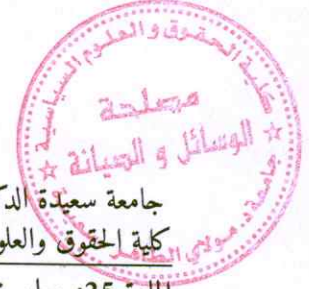 كلية الحقوق و العلوم السياسية
مصلحة
الوسائل و الصيانة
جامعة د. مولاي الطاهر
جامعة سعيدة الدك
كلية الحقوق والعلو